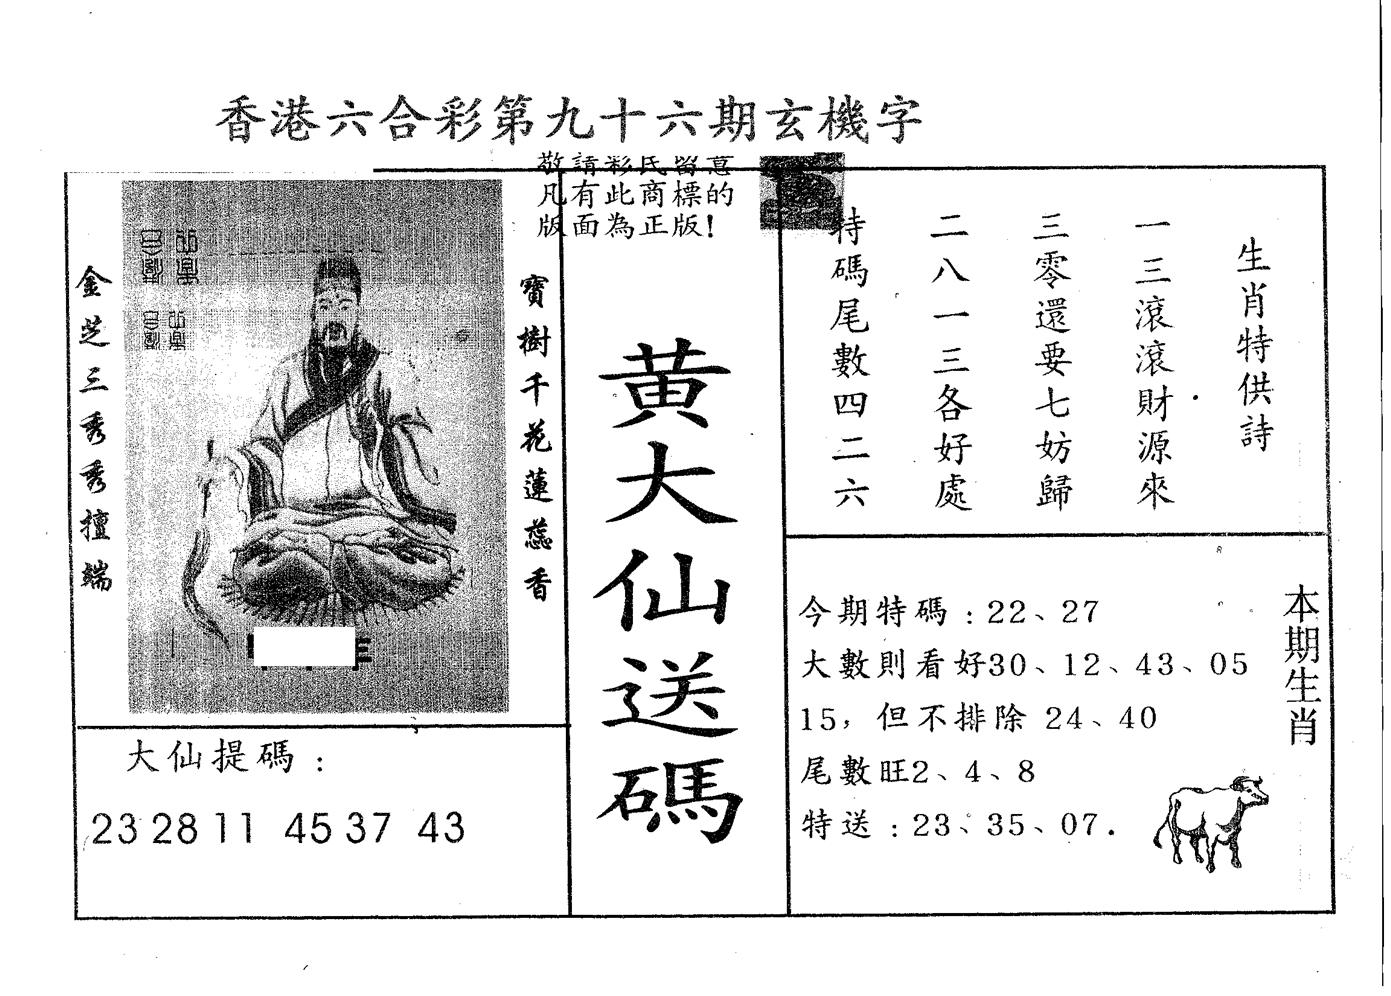 香港六合彩第九十六期玄機字
敬請彩民留意
凡有此商標的
版面為正版!
金芝三秀秀擅端
寶樹千花蓮蕊香
黃大仙送碼
生肖特供詩
一三滾滾財源來
三零還要七妨歸
二八一三各好處
特碼尾數四二六
本期生肖
今期特碼:22、27
大數則看好30、12、43、05
15,但不排除 24、40
尾數旺2、4、8
特送:23、35、07.
大仙提碼:
23 28 11 45 37 43